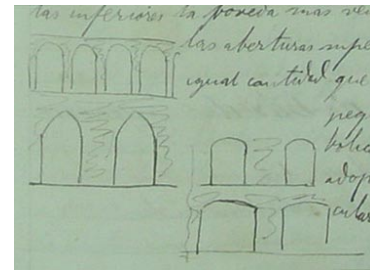 las inferiores la boveda mas ve
las aberturas supe
igual cantidad que
peq
adop